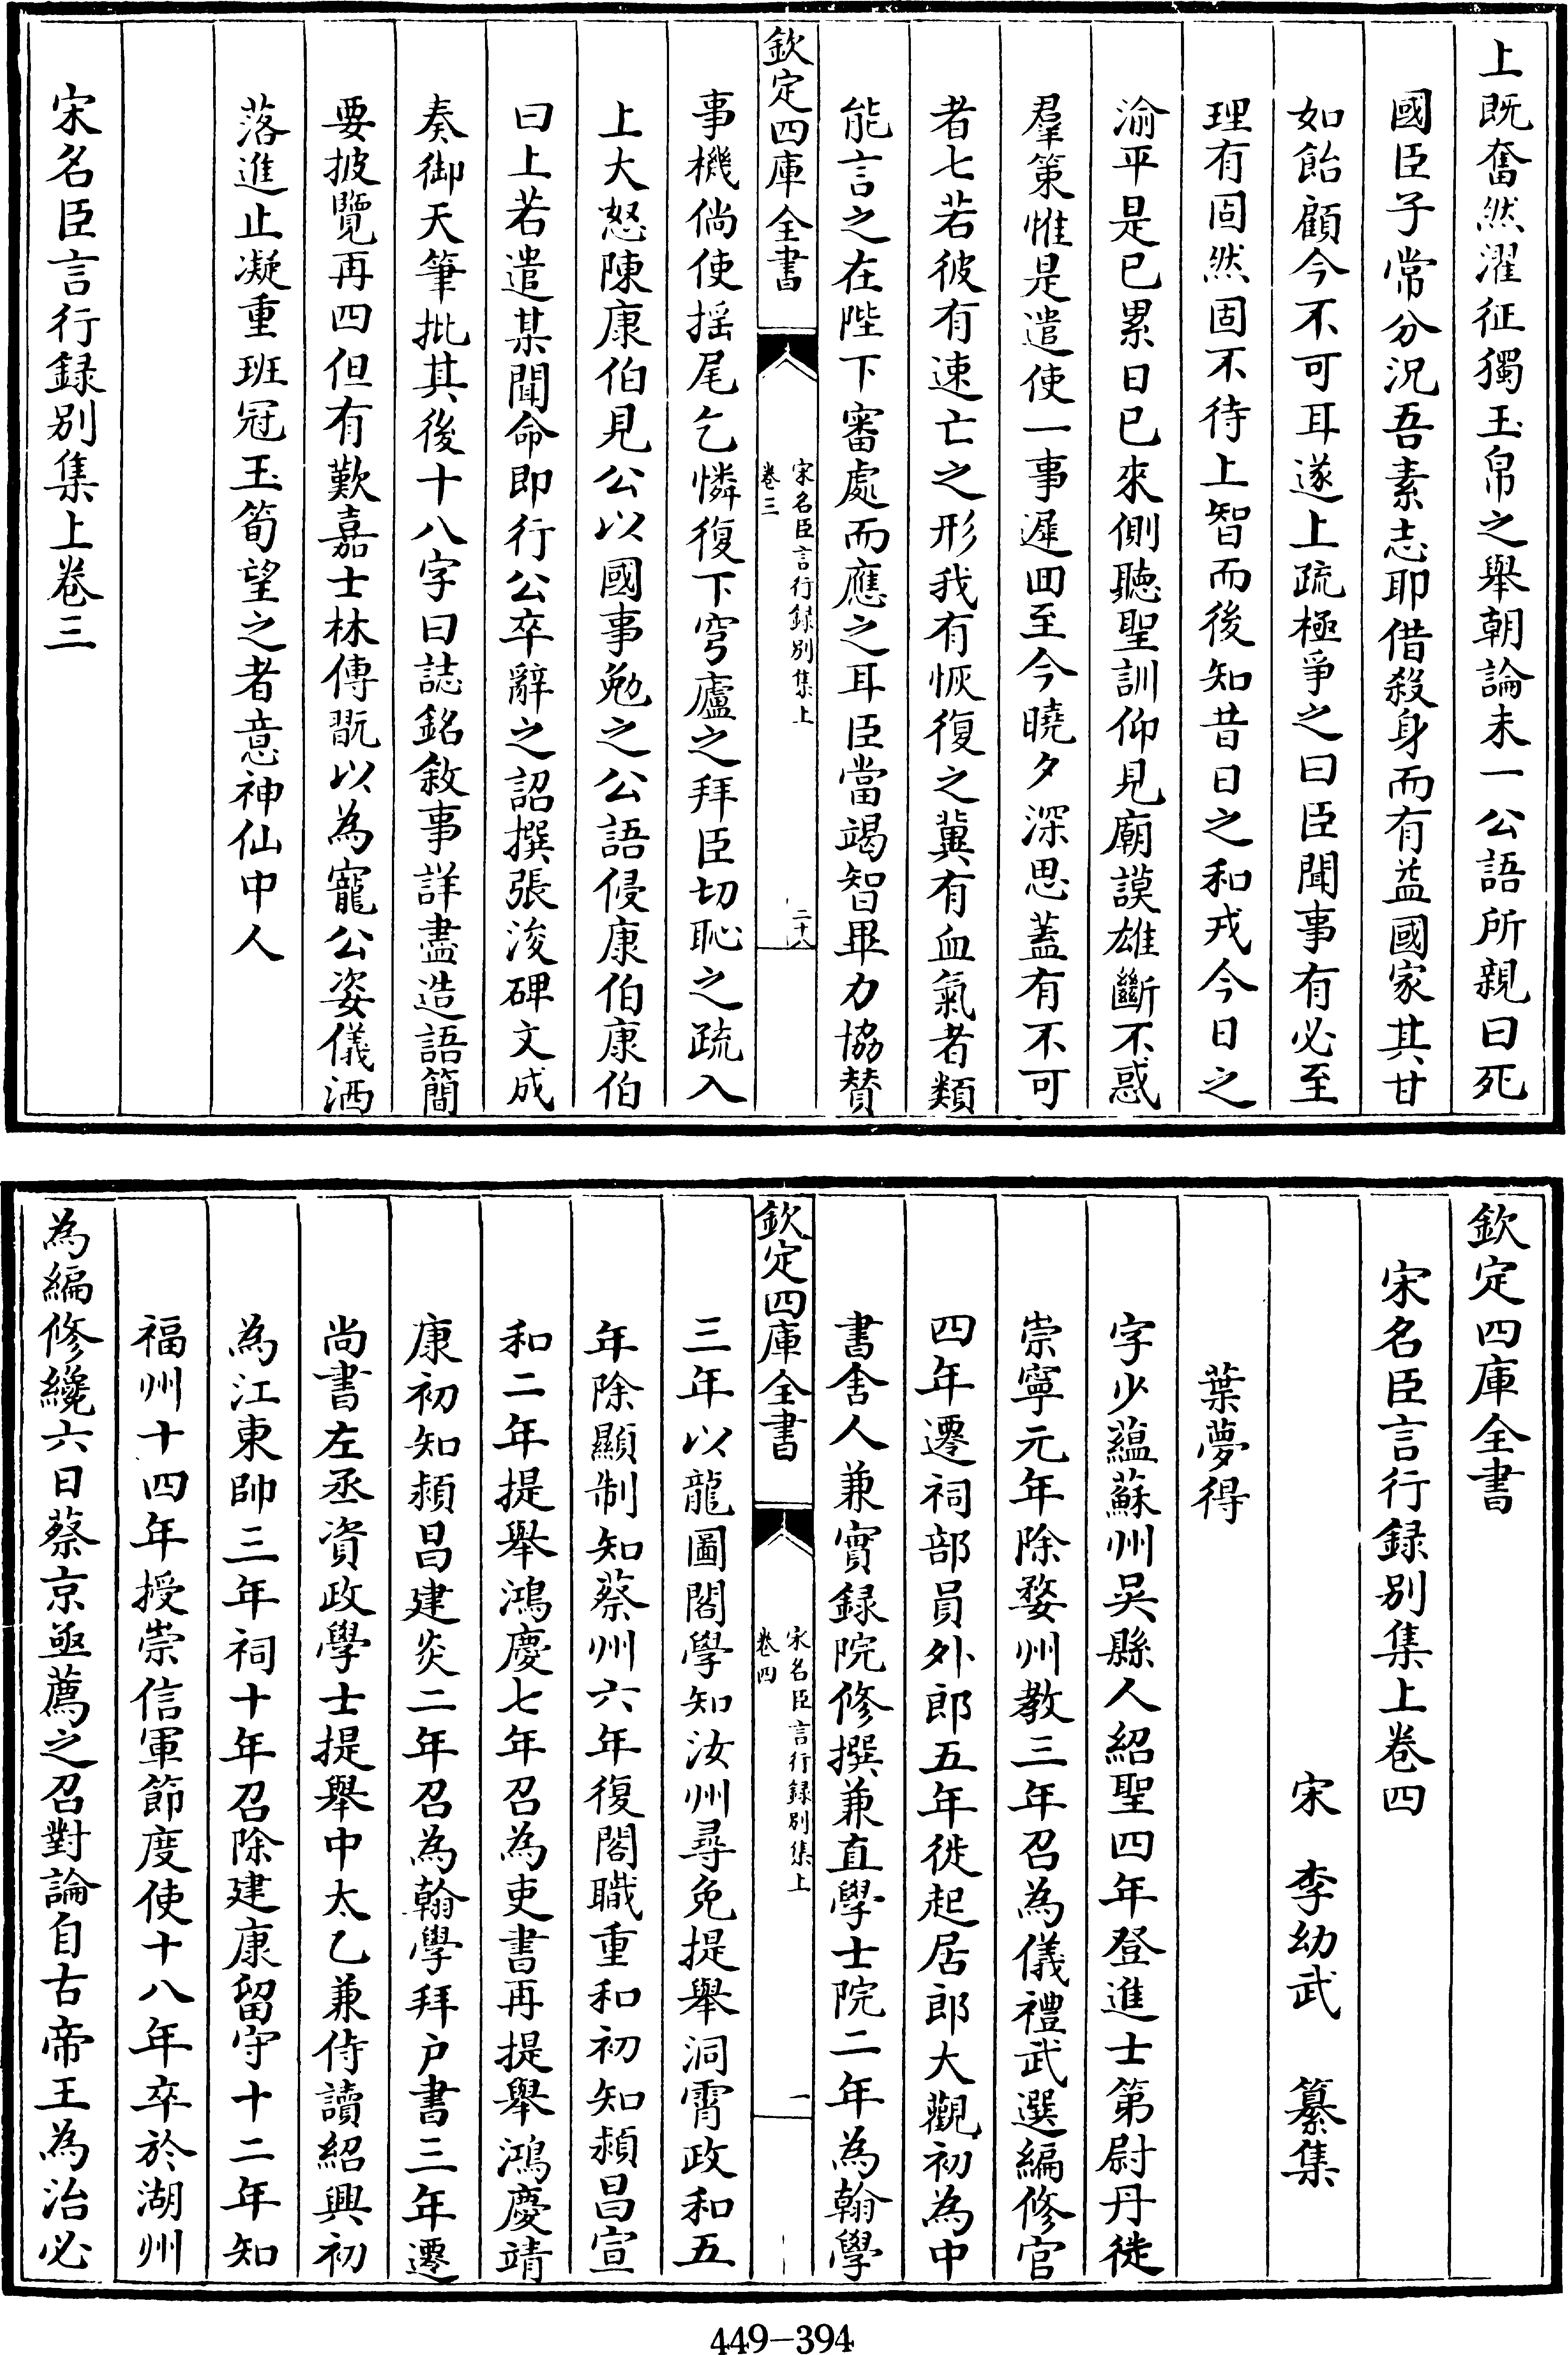 上既奮然濯征獨玉帛之舉朝論未一公語所親曰死
國臣子常分況吾素志耶借殺身而有益國家其甘
如飴顧今不可耳遂上疏極爭之曰臣聞事有必至
理有固然固不待上智而後知昔日之和戎今日之
渝平是已累日已來側聽聖訓仰見廟謨雄斷不惑
羣策惟是遣使一事遲回至今曉夕深思蓋有不可
者七若彼有速亡之形我有恢復之冀有血氣者類
能言之在陛下審處而應之耳臣當竭智畢力協賛
欽定四庫全書
宋名臣言行録別集上
卷三
二十八
事機倘使揺尾乞憐復下穹廬之拜臣切恥之疏入
上大怒陳康伯見公以國事勉之公語侵康伯康伯
曰上若遣某聞命即行公卒辭之詔撰張浚碑文成
奏御天筆批其後十八字曰誌銘敘事詳盡造語簡
要披覽再四但有歎嘉士林傳翫以為寵公姿儀洒
落進止凝重班冠玉筍望之者意神仙中人
宋名臣言行録別集上卷三
欽定四庫全書
宋名臣言行録別集上卷四
宋 李幼武 纂集
葉夢得
字少藴蘇州吳縣人紹聖四年登進士第尉丹徒
崇寧元年除婺州教三年召為儀禮武選編修官
四年遷祠部員外郎五年徙起居郎大觀初為中
書舍人兼實録院修撰兼直學士院二年為翰學
欽定四庫全書
宋名臣言行録別集上
卷四
一
三年以龍圖閣學知汝州尋免提舉洞霄政和五
年除顯制知蔡州六年復閣職重和初知潁昌宣
和二年提舉鴻慶七年召為吏書再提舉鴻慶靖
康初知潁昌建炎二年召為翰學拜户書三年遷
尚書左丞資政學士提舉中太乙兼侍讀紹興初
為江東帥三年祠十年召除建康留守十二年知
福州十四年授崇信軍節度使十八年卒於湖州
為編修纔六日蔡京亟薦之召對論自古帝王為治必
449-394